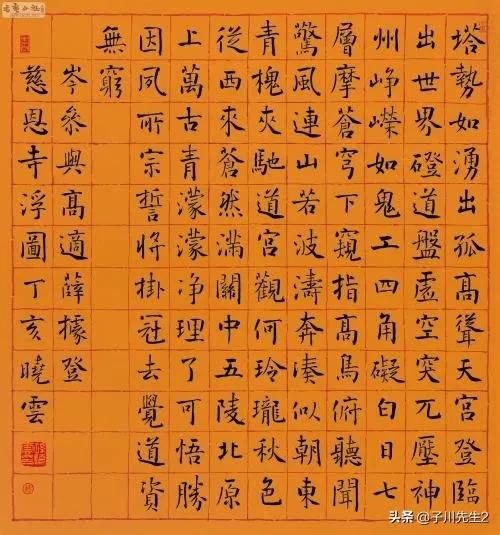 塔勢如湧出孤高聳天宮登臨
出世界磴道盤虛空突兀壓神
州崢嶸如鬼工四角礙白日七
層摩蒼穹下窺指高鳥俯聽聞
驚風連山若波濤奔湊似朝東
青槐夾馳道宮觀何玲瓏秋色
從西來蒼然滿關中五陵北原
上萬古青濛濛净理了可悟勝
因夙所宗誓將掛冠去覺道資
無窮
岑參與高適薛據登
慈恩寺浮圖丁亥曉雲
头条 @子川先生2